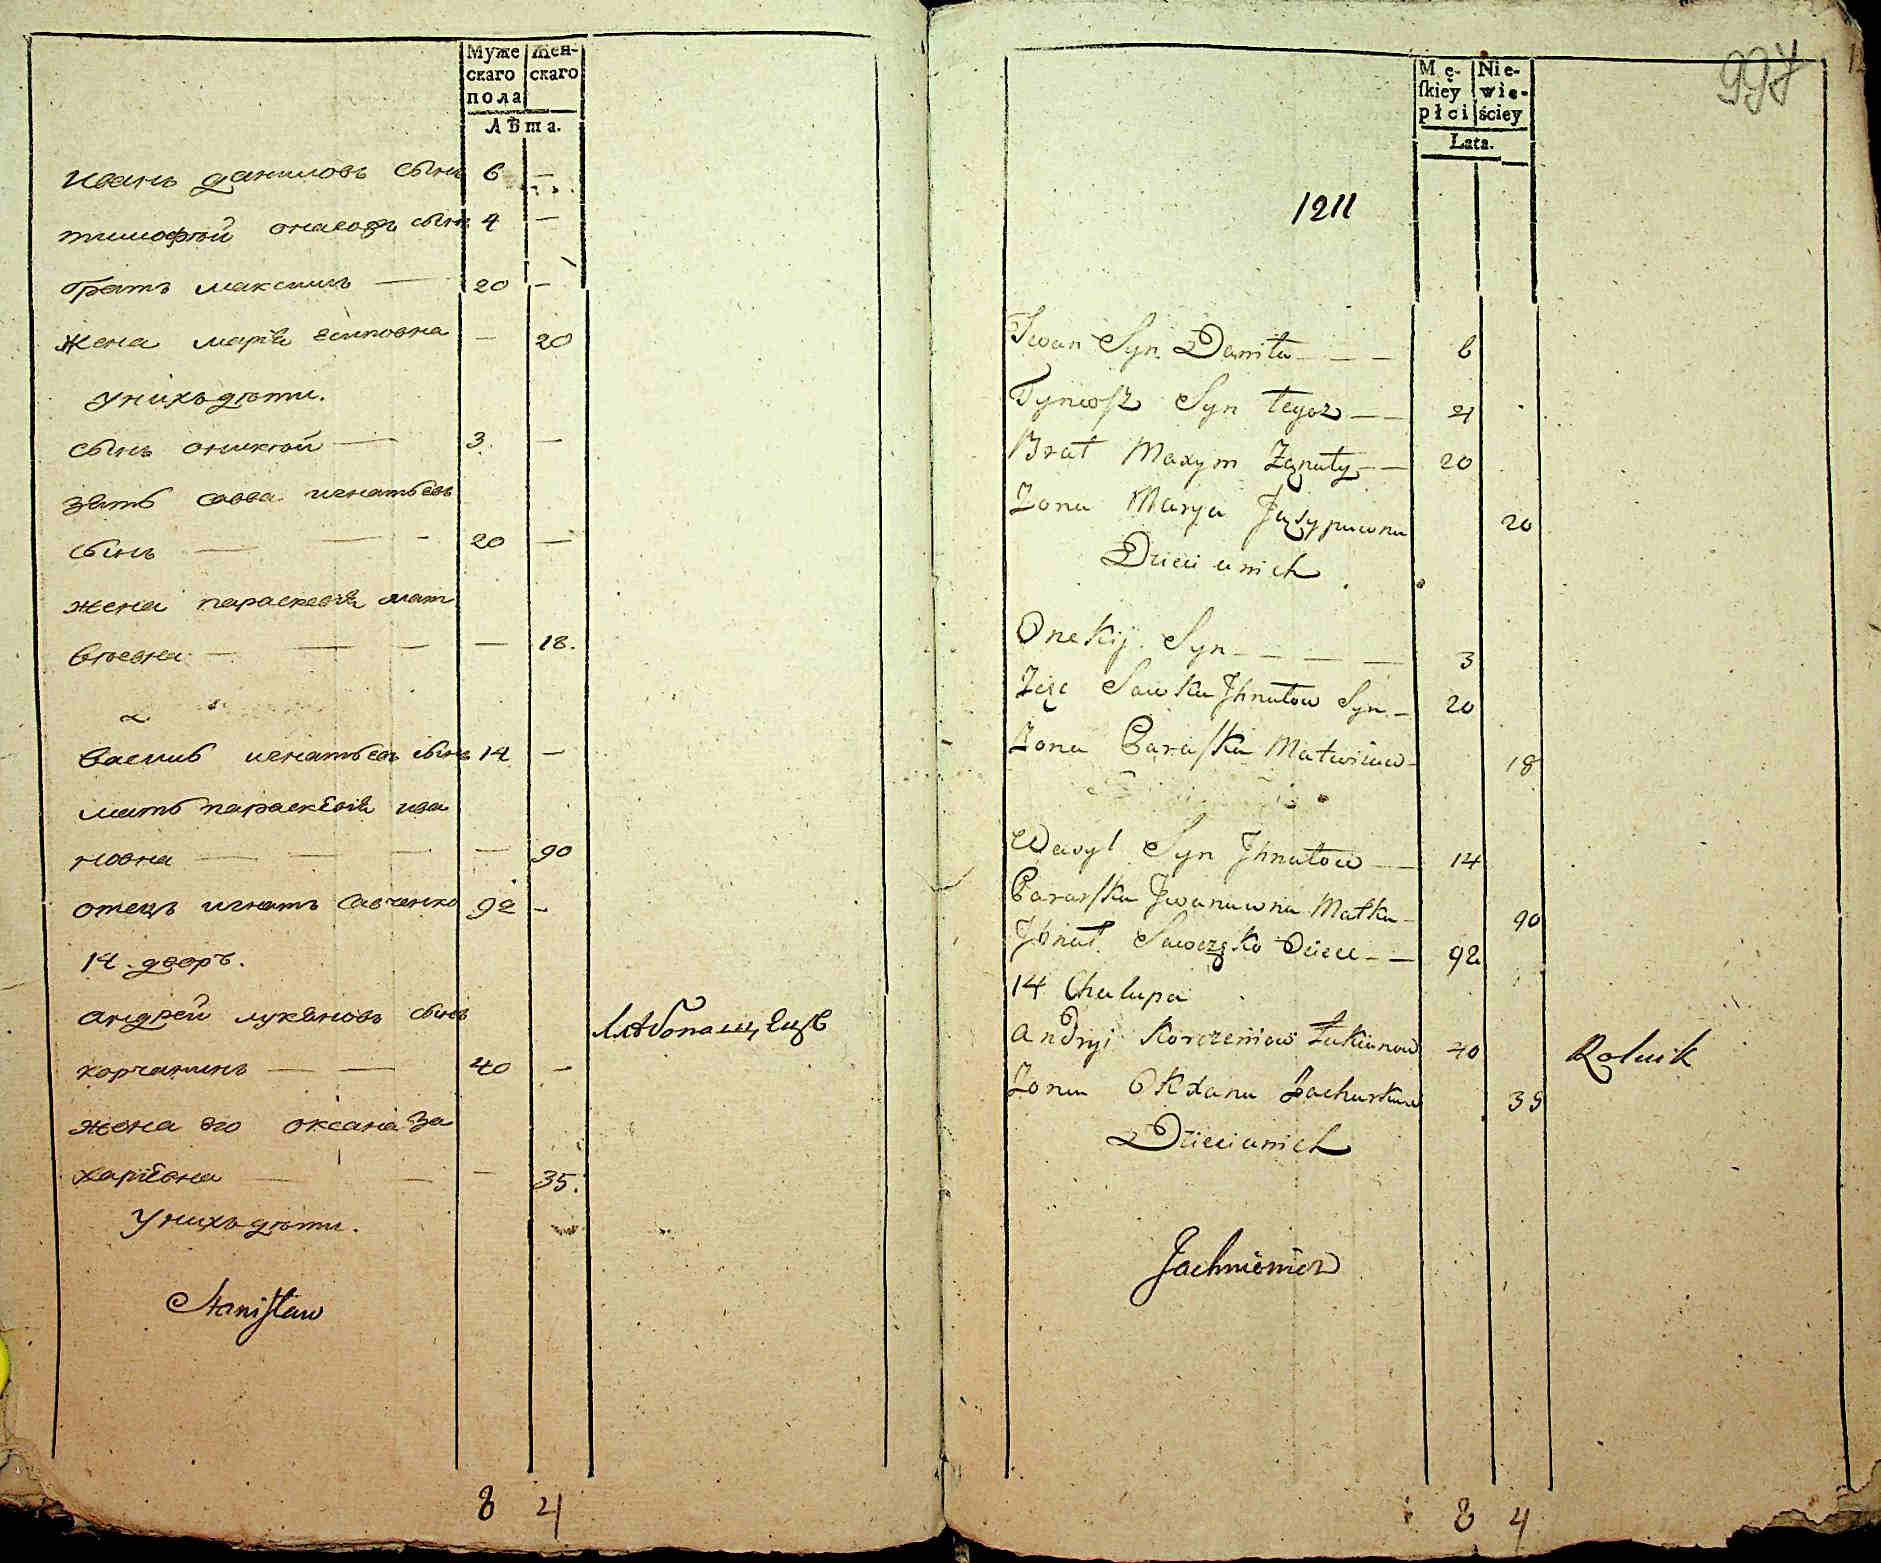 Муже Жен-
скаго скаго
пола
Лѣта.
иванъ даниловъ сынъ 6 —
тимофѣй онаго ж сынъ 4 —
братъ максимъ — 20 —
жена марѣя есиповна — 20
у нихъ дѣти.
сынъ оникѣй — 3. —
зять савва игнатьевъ
сынъ — — - 20 —
жена параскевія мат
вѣевна — — - — 18.
василь игнатьевъ сынъ 14 —
мать параскевія ива
новна — — — — 90
отецъ игнатъ савченко 92 -
14. дворъ.
андрей лукяновъ сынъ
корчанинъ — — 40 — хлѣбопашецъ
жена его оксана за
харіевна — - — 35.
у нихъ дѣти.
Stanisław
8 4
997
Mę- Nie-
skiey wie-
płci ściey
Lata.
1211
Jwan Syn Daniła - - - 6
Tymosz Syn tegoz - - 4
Brat Maxym Zonaty - - 20
Zona Marya Jasypuwna 20
Dzieci u nich
Onekij Syn - - - - 3
Zięc Sawka Jhnatow Syn - 20
Zona Paraska Matwiiow- 18
Wasyl Syn Jhnatow - 14
Paraska Jwanuwna Matka - 90
Jhnat Sawczęko Dziad - - 92
14 Chalupa
Andryi Korczeniow Łukianow 40 Rolnik
Zona Oxana Zacharkuw 35
Dzieci u nich
Jachniewicz
8 4